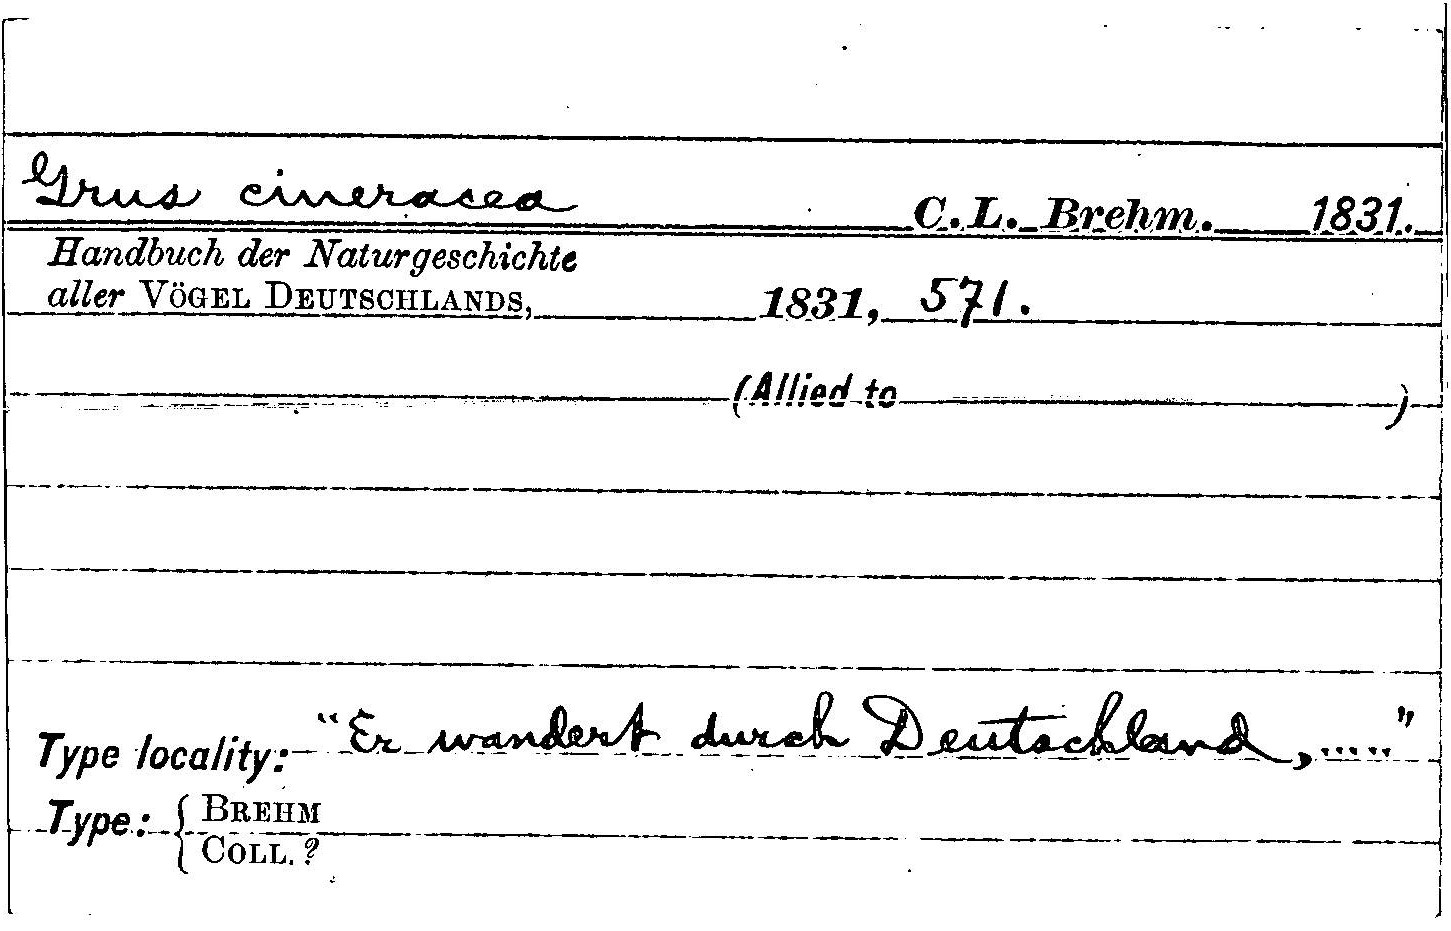 Grus cineracea C. L. Brehm. 1831.
Handbuch der Naturgeschichte
aller VÖGEL DEUTSCHLANDS, 1831, 571.
(Allied to )
Type locality: "Er wandert durch Deutschland, ....."
Type: { BREHM
COLL. ?